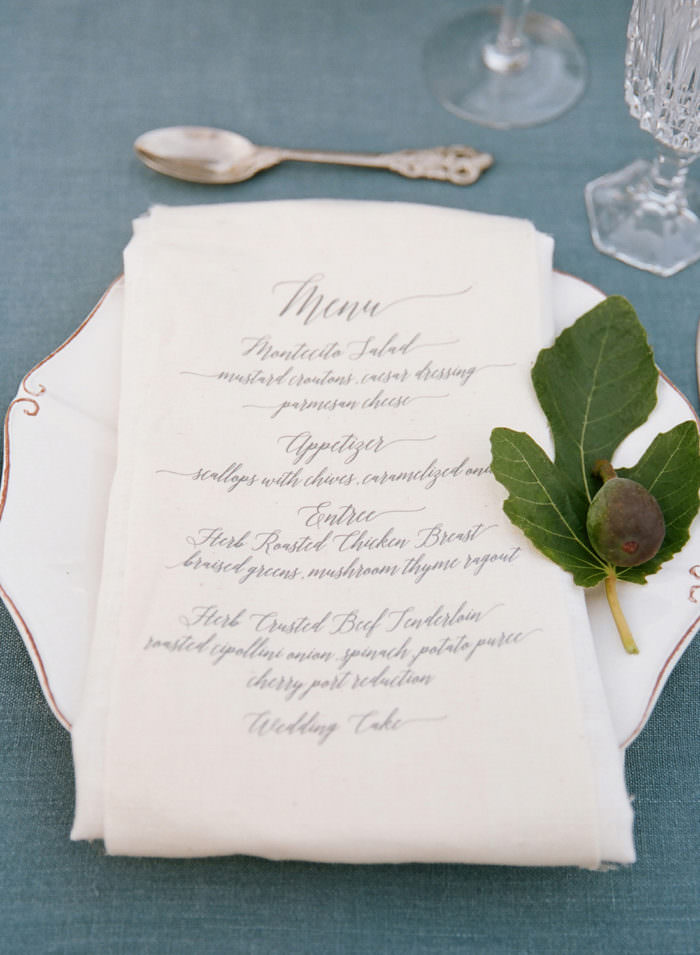 Menu
Montecito Salad
mustard croutons, caesar dressing
parmesan cheese
Appetizer
scallops with chives, caramelized
Entree
Herb Roasted Chicken Breast
braised greens, mushroom thyme ragout
Herb Crusted Beef Tenderloin
roasted cipollini onion, spinach, potato puree
cherry port reduction
Wedding Cake